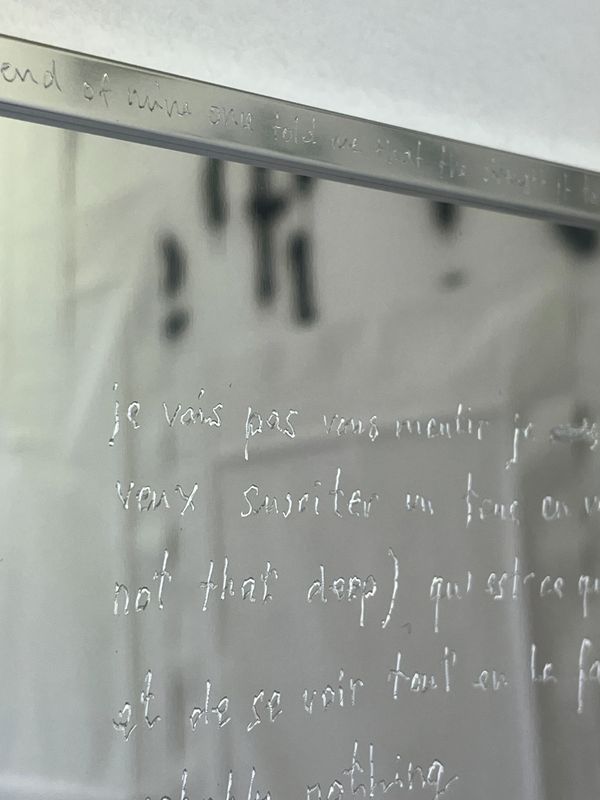 end of mine once told me that the
je vais pas vous mentir je
veux susciter un truc en v
not that deep) qu'est-ce qu
et de se voir tout en le fa
probably nothing